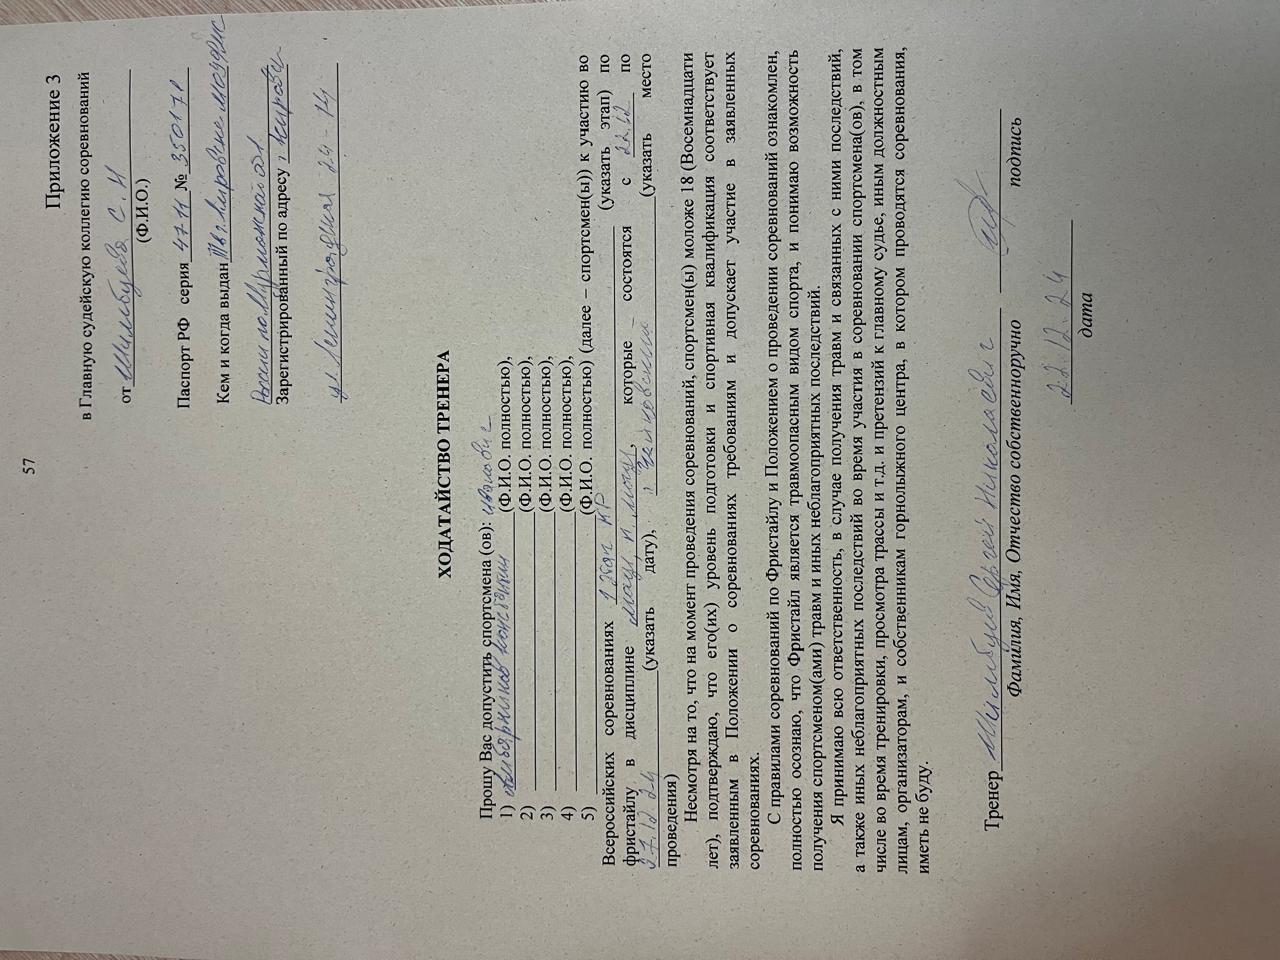 57
Приложение 3
в Главную судейскую коллегию соревнований
от Шимбуева С. Н
(Ф.И.О.)
Паспорт РФ серия 47 11 № 350178
Кем и когда выдан в г. Кировске
России по Мурманской обл
Зарегистрированный по адресу г Кировск
ул. Ленинградская 24 - 14
ХОДАТАЙСТВО ТРЕНЕРА
Прошу Вас допустить спортсмена (ов):
1) (Ф.И.О. полностью),
2) (Ф.И.О. полностью),
3) (Ф.И.О. полностью),
4) (Ф.И.О. полностью),
5) (Ф.И.О. полностью) (далее – спортсмен(ы)) к участию во
Всероссийских соревнованиях 1 этап КР (указать этап) по
фристайлу в дисциплине могул, п. могул, которые состоятся с 22.12 по
27.12.24 (указать дату), г. Чайковский (указать место
проведения)
Несмотря на то, что на момент проведения соревнований, спортсмен(ы) моложе 18 (Восемнадцати
лет), подтверждаю, что его(их) уровень подготовки и спортивная квалификация соответствует
заявленным в Положении о соревнованиях требованиям и допускает участие в заявленных
соревнованиях.
С правилами соревнований по Фристайлу и Положением о проведении соревнований ознакомлен,
полностью осознаю, что Фристайл является травмоопасным видом спорта, и понимаю возможность
получения спортсменом(ами) травм и иных неблагоприятных последствий.
Я принимаю всю ответственность, в случае получения травм и связанных с ними последствий,
а также иных неблагоприятных последствий во время участия в соревновании спортсмена(ов), в том
числе во время тренировки, просмотра трассы и т.д. и претензий к главному судье, иным должностным
лицам, организаторам, и собственникам горнолыжного центра, в котором проводятся соревнования,
иметь не буду.
Тренер Шимбуев Сергей Николаевич
Фамилия, Имя, Отчество собственноручно подпись
22.12.24
дата